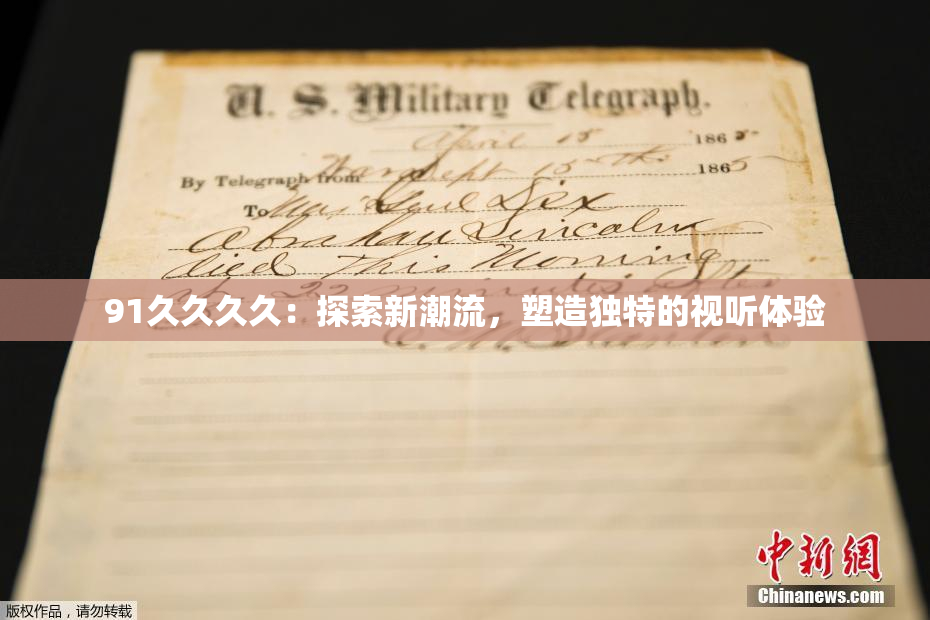 U. S. Military Telegraph.
April 15 1865
By Telegraph from Wash Sept 15th 1865
To Maj Genl Dix
Abraham Lincoln
died This Morning
at 22 minutes after
91久久久久：探索新潮流，塑造独特的视听体验
E. M. Stanton
中新网
Chinanews.com
版权作品，请勿转载